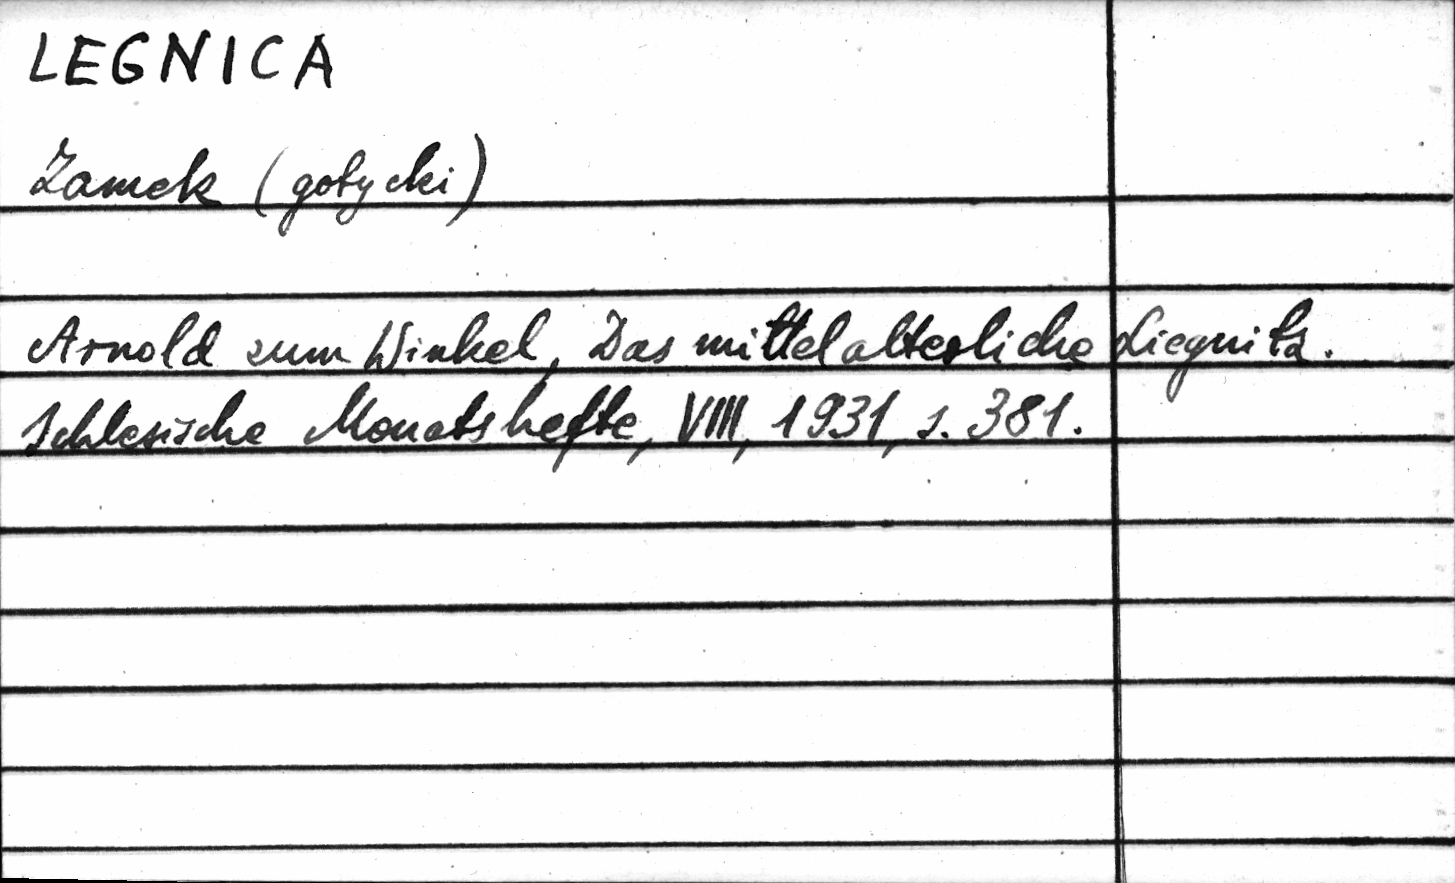 LEGNICA
Zamek (gotycki)
Arnold zum Winkel, Das mittelalterliche Liegnitz.
Schlesische Monatshefte, VIII, 1931, s. 381.